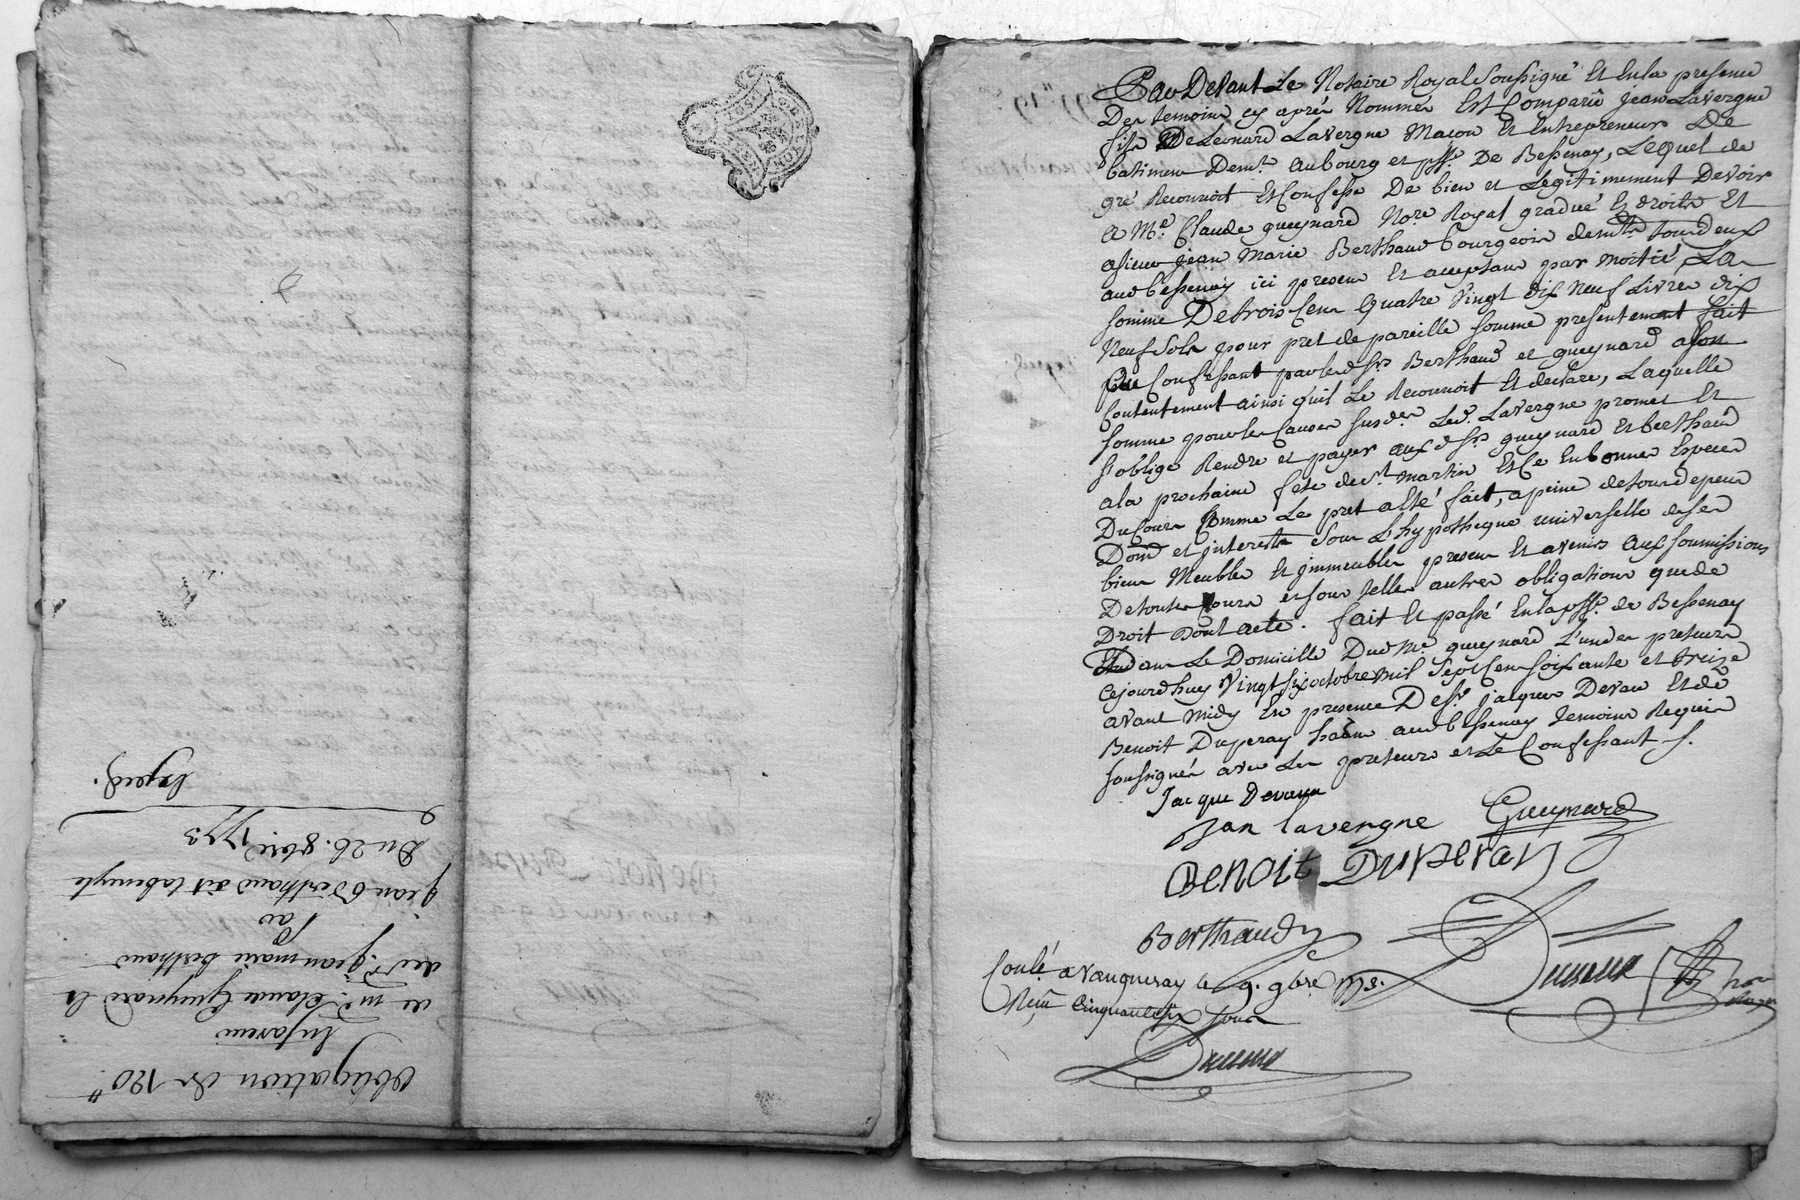 Obligation de 120"
En faveur
de me Claude Gueynard &
de sr. jean marie berthaud
Par
jean Berthaud dit
Du 26. 8bre 1773
Expéd.
Par Devant Le Notaire Royal Soussigné Et En la presence
Des temoins cy aprés Nommés Est Comparû jean Lavergne
fils De Leonard Lavergne Macon Et Entrepreneur De
batimens Demt. au bourg et psse. De Bessenay, Lequel de
gré Reconnoit Et Confesse De bien et Legitimement Devoir
a Me. Claude gueynard Nore Royal gradué Es droits Et
a sieur jean Marie Berthaud bourgeois demts. tous deux
aud bessenay ici presens Et acceptans par moitié, La
somme De trois Cens quatre vingt dix Neuf Livres dix
Neuf Sols pour pret de pareille somme presentement fait
Confessant par lesd srs Berthaud et gueynard a son
Contentement ainsi qu'il Le Reconnoit Et declare, Laquelle
somme pour les Causes susdes. Led. Lavergne promet Et
s'oblige Rendre et payer auxd srs gueynard Et berthaud
a la prochaine fete de st. martin Et Ce En bonnes Especes
Du Cours Comme Le pret a Eté fait, a peine de tous depens
Dom et interets Sous L'hypotheque universelle de ses
biens Meubles Et jmmeubles presens Et avenirs aux soumissions
De toutes Cours et sous telles autres obligations que de
Droit Dont acte. fait Et passé En la psse. de Bessenay
Dans Le Domicille Dud Me. gueynard L'un des preteurs
Cejourdhuy vingt six octobre mil Sept Cens soixante et treize
avant midy En presence De sr. jacques Devaux Et de
Benoit Duperay aud bessenay temoins Requis
soussignés avec Les preteurs et Le Confessant /.
Jacque Devaux
Jan lavergne Gueynard
Benoit Duperay
Berthaud
Conlé a Vaugneray le 9. 9bre 1773.
Reçu Cinquante six sous